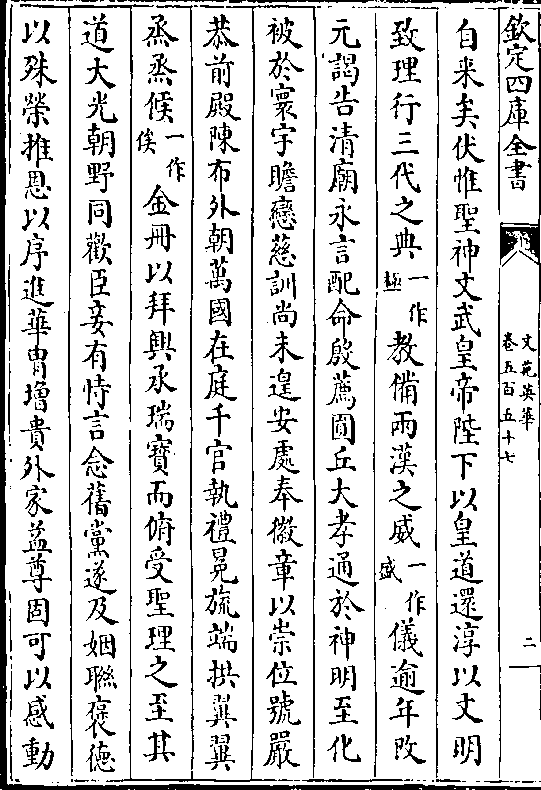 欽定四庫全書
文苑英華
卷五百五十七
二
自来矣伏惟聖神文武皇帝陛下以皇道還淳以文明
致理行三代之典一作極教備兩漢之威一作盛儀逾年改
元謁告清廟永言配命殷薦圓丘大孝通於神明至化
被於寰宇瞻戀慈訓尚未遑安處奉徽章以崇位號嚴
恭前殿陳布外朝萬國在庭千官執禮冕旒端拱翼翼
烝烝候一作俟金冊以拜興承瑞寶而俯受聖理之至其
道大光朝野同歡臣妾有恃言念舊黨遂及姻聯褒徳
以殊榮推恩以序進華胄增貴外家益尊固可以感動